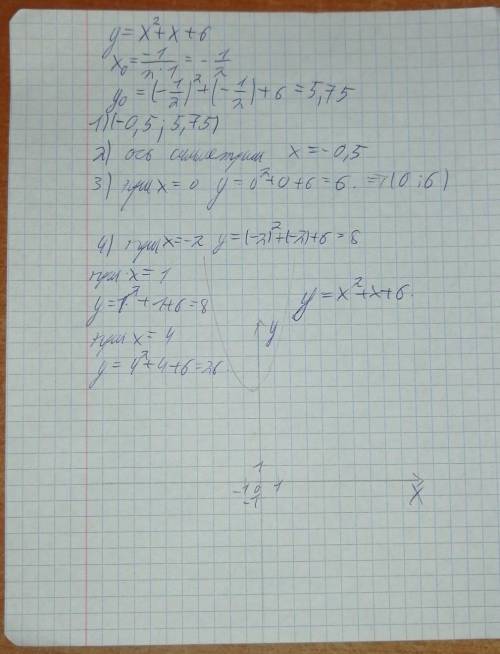 y = x² + x + 6
x₀ = -1/2·1 = - 1/2
y₀ = (- 1/2)² + (- 1/2) + 6 = 5,75
1) (-0,5 ; 5,75)
2) ось симметрии x = -0,5
3) при x = 0 y = 0² + 0 + 6 = 6. ⇒ (0 ; 6)
4) при x = -2 y = (-2)² + (-2) + 6 = 8
при x = 1
y = 1² + 1 + 6 = 8
y = x² + x + 6.
при x = 4
y
y = 4² + 4 + 6 = 26
1
-1 0 1
-1
X